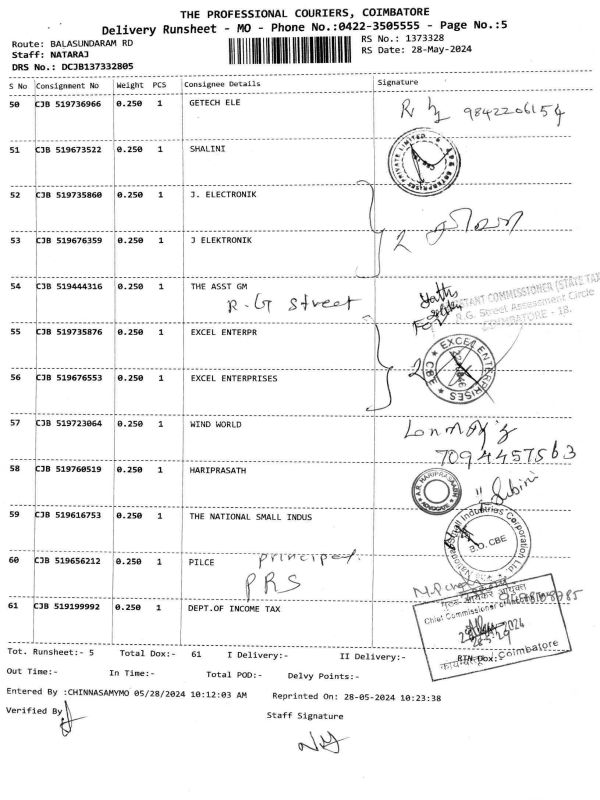 THE PROFESSIONAL COURIERS, COIMBATORE
Delivery Runsheet - MO - Phone No.:0422-3505555 - Page No.:5
Route: BALASUNDARAM RD
RS No.: 1373328
Staff: NATARAJ
RS Date: 28-May-2024
DRS No.: DCJB137332805
S No Consignment No Weight PCS Consignee Details Signature
50 CJB 519736966 0.250 1 GETECH ELE 9842206154
51 CJB 519673522 0.250 1 SHALINI
52 CJB 519735860 0.250 1 J. ELECTRONIK
2
53 CJB 519676359 0.250 1 J ELEKTRONIK
54 CJB 519444316 0.250 1 THE ASST GM
R.G Street
STANT COMMISSIONER (STATE TAX
R.G. Street Assessment Circle
COIMBATORE - 18.
55 CJB 519735876 0.250 1 EXCEL ENTERPR
2
EXCEL ENTERPRISES
CBE
56 CJB 519676553 0.250 1 EXCEL ENTERPRISES
57 CJB 519723064 0.250 1 WIND WORLD
7094457563
58 CJB 519760519 0.250 1 HARIPRASATH
ADVOCATE
59 CJB 519616753 0.250 1 THE NATIONAL SMALL INDUS
Small Industries Corporation Ltd
B.O. CBE
60 CJB 519656212 0.250 1 PILCE principal.
PRS
61 CJB 519199992 0.250 1 DEPT.OF INCOME TAX
Chief Commissioner of
2024
Coimbatore
Tot. Runsheet:- 5 Total Dox:- 61 I Delivery:- II Delivery:- RTN Dox:
Out Time:- In Time:- Total POD:- Delvy Points:-
Entered By :CHINNASAMYMO 05/28/2024 10:12:03 AM Reprinted On: 28-05-2024 10:23:38
Verified By
Staff Signature